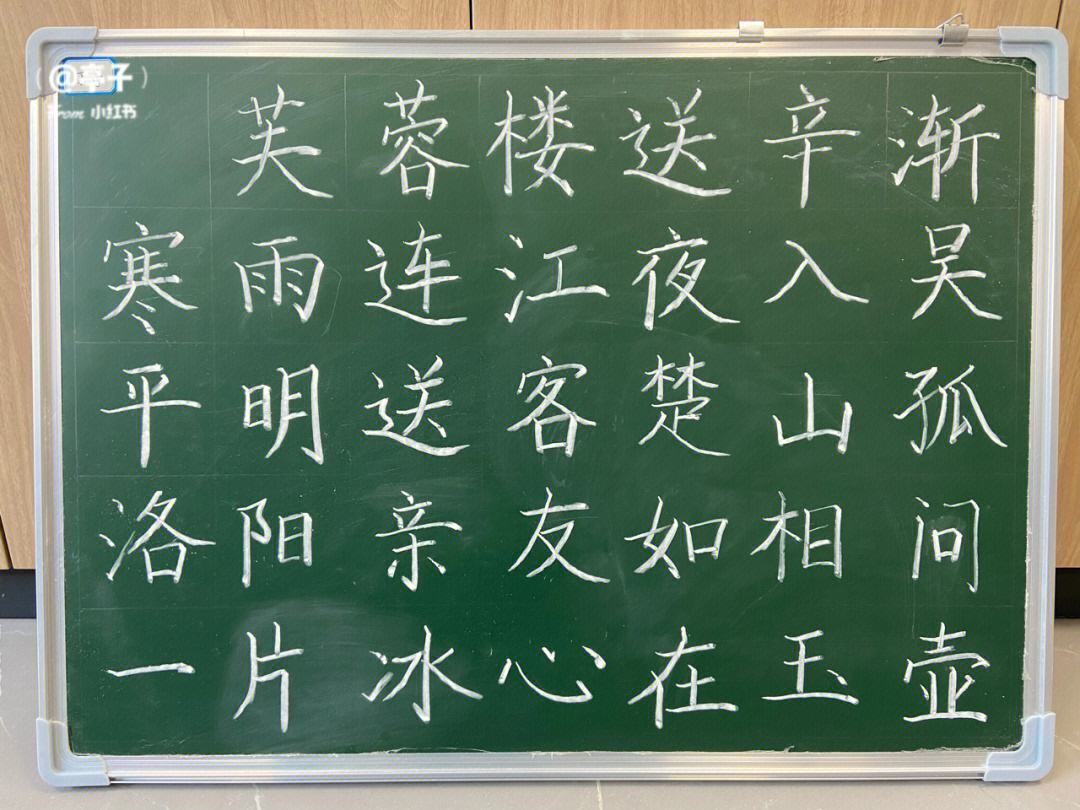 @亭子
from 小红书
芙蓉楼送辛渐
寒雨连江夜入吴
平明送客楚山孤
洛阳亲友如相问
一片冰心在玉壶